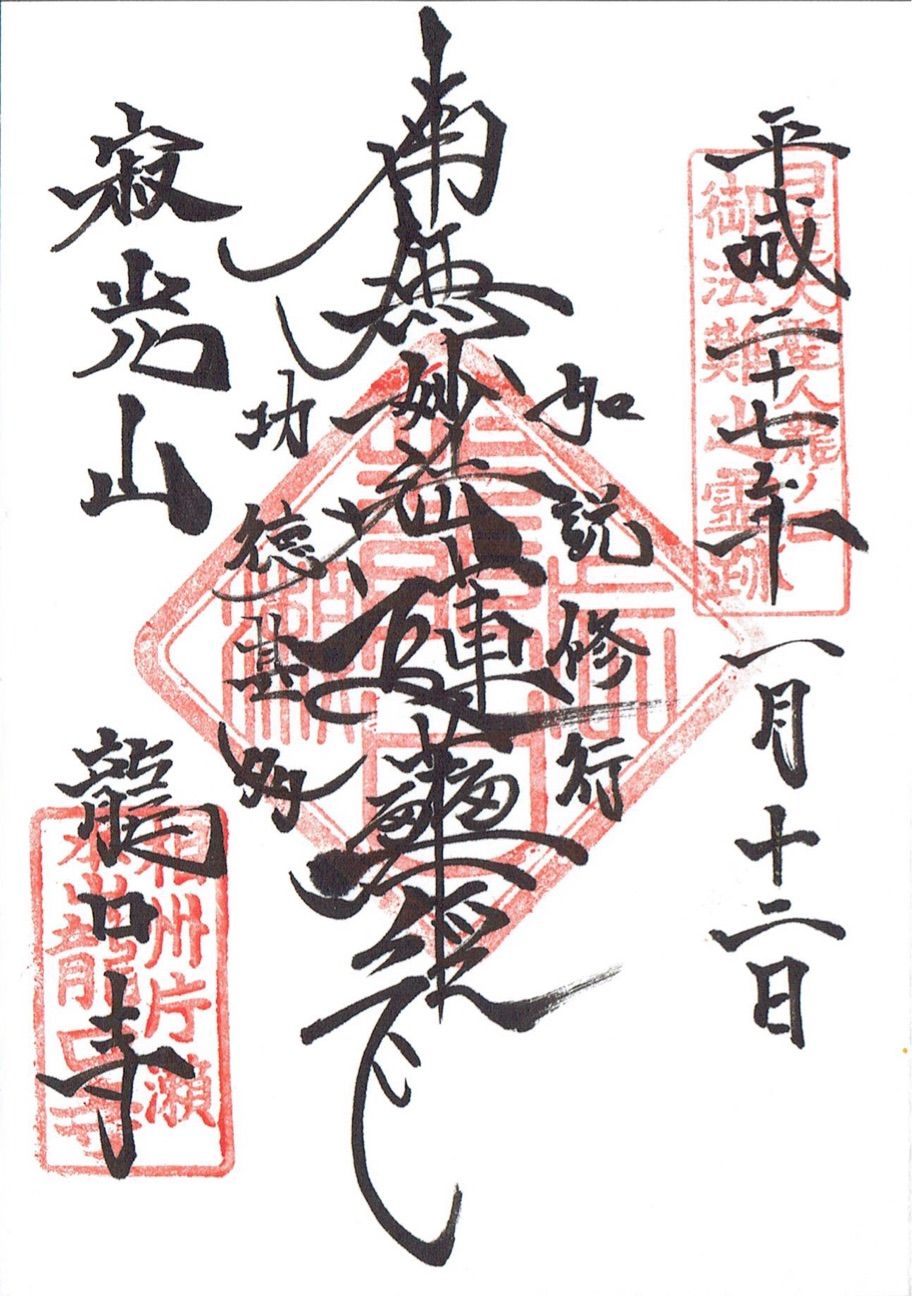 平成二十七年 一月十二日
日蓮大聖人龍ノ口
御法難之霊跡
如説修行
南無妙法蓮華經
功徳甚多
寂光山
龍口寺
相州片瀬
龍口寺